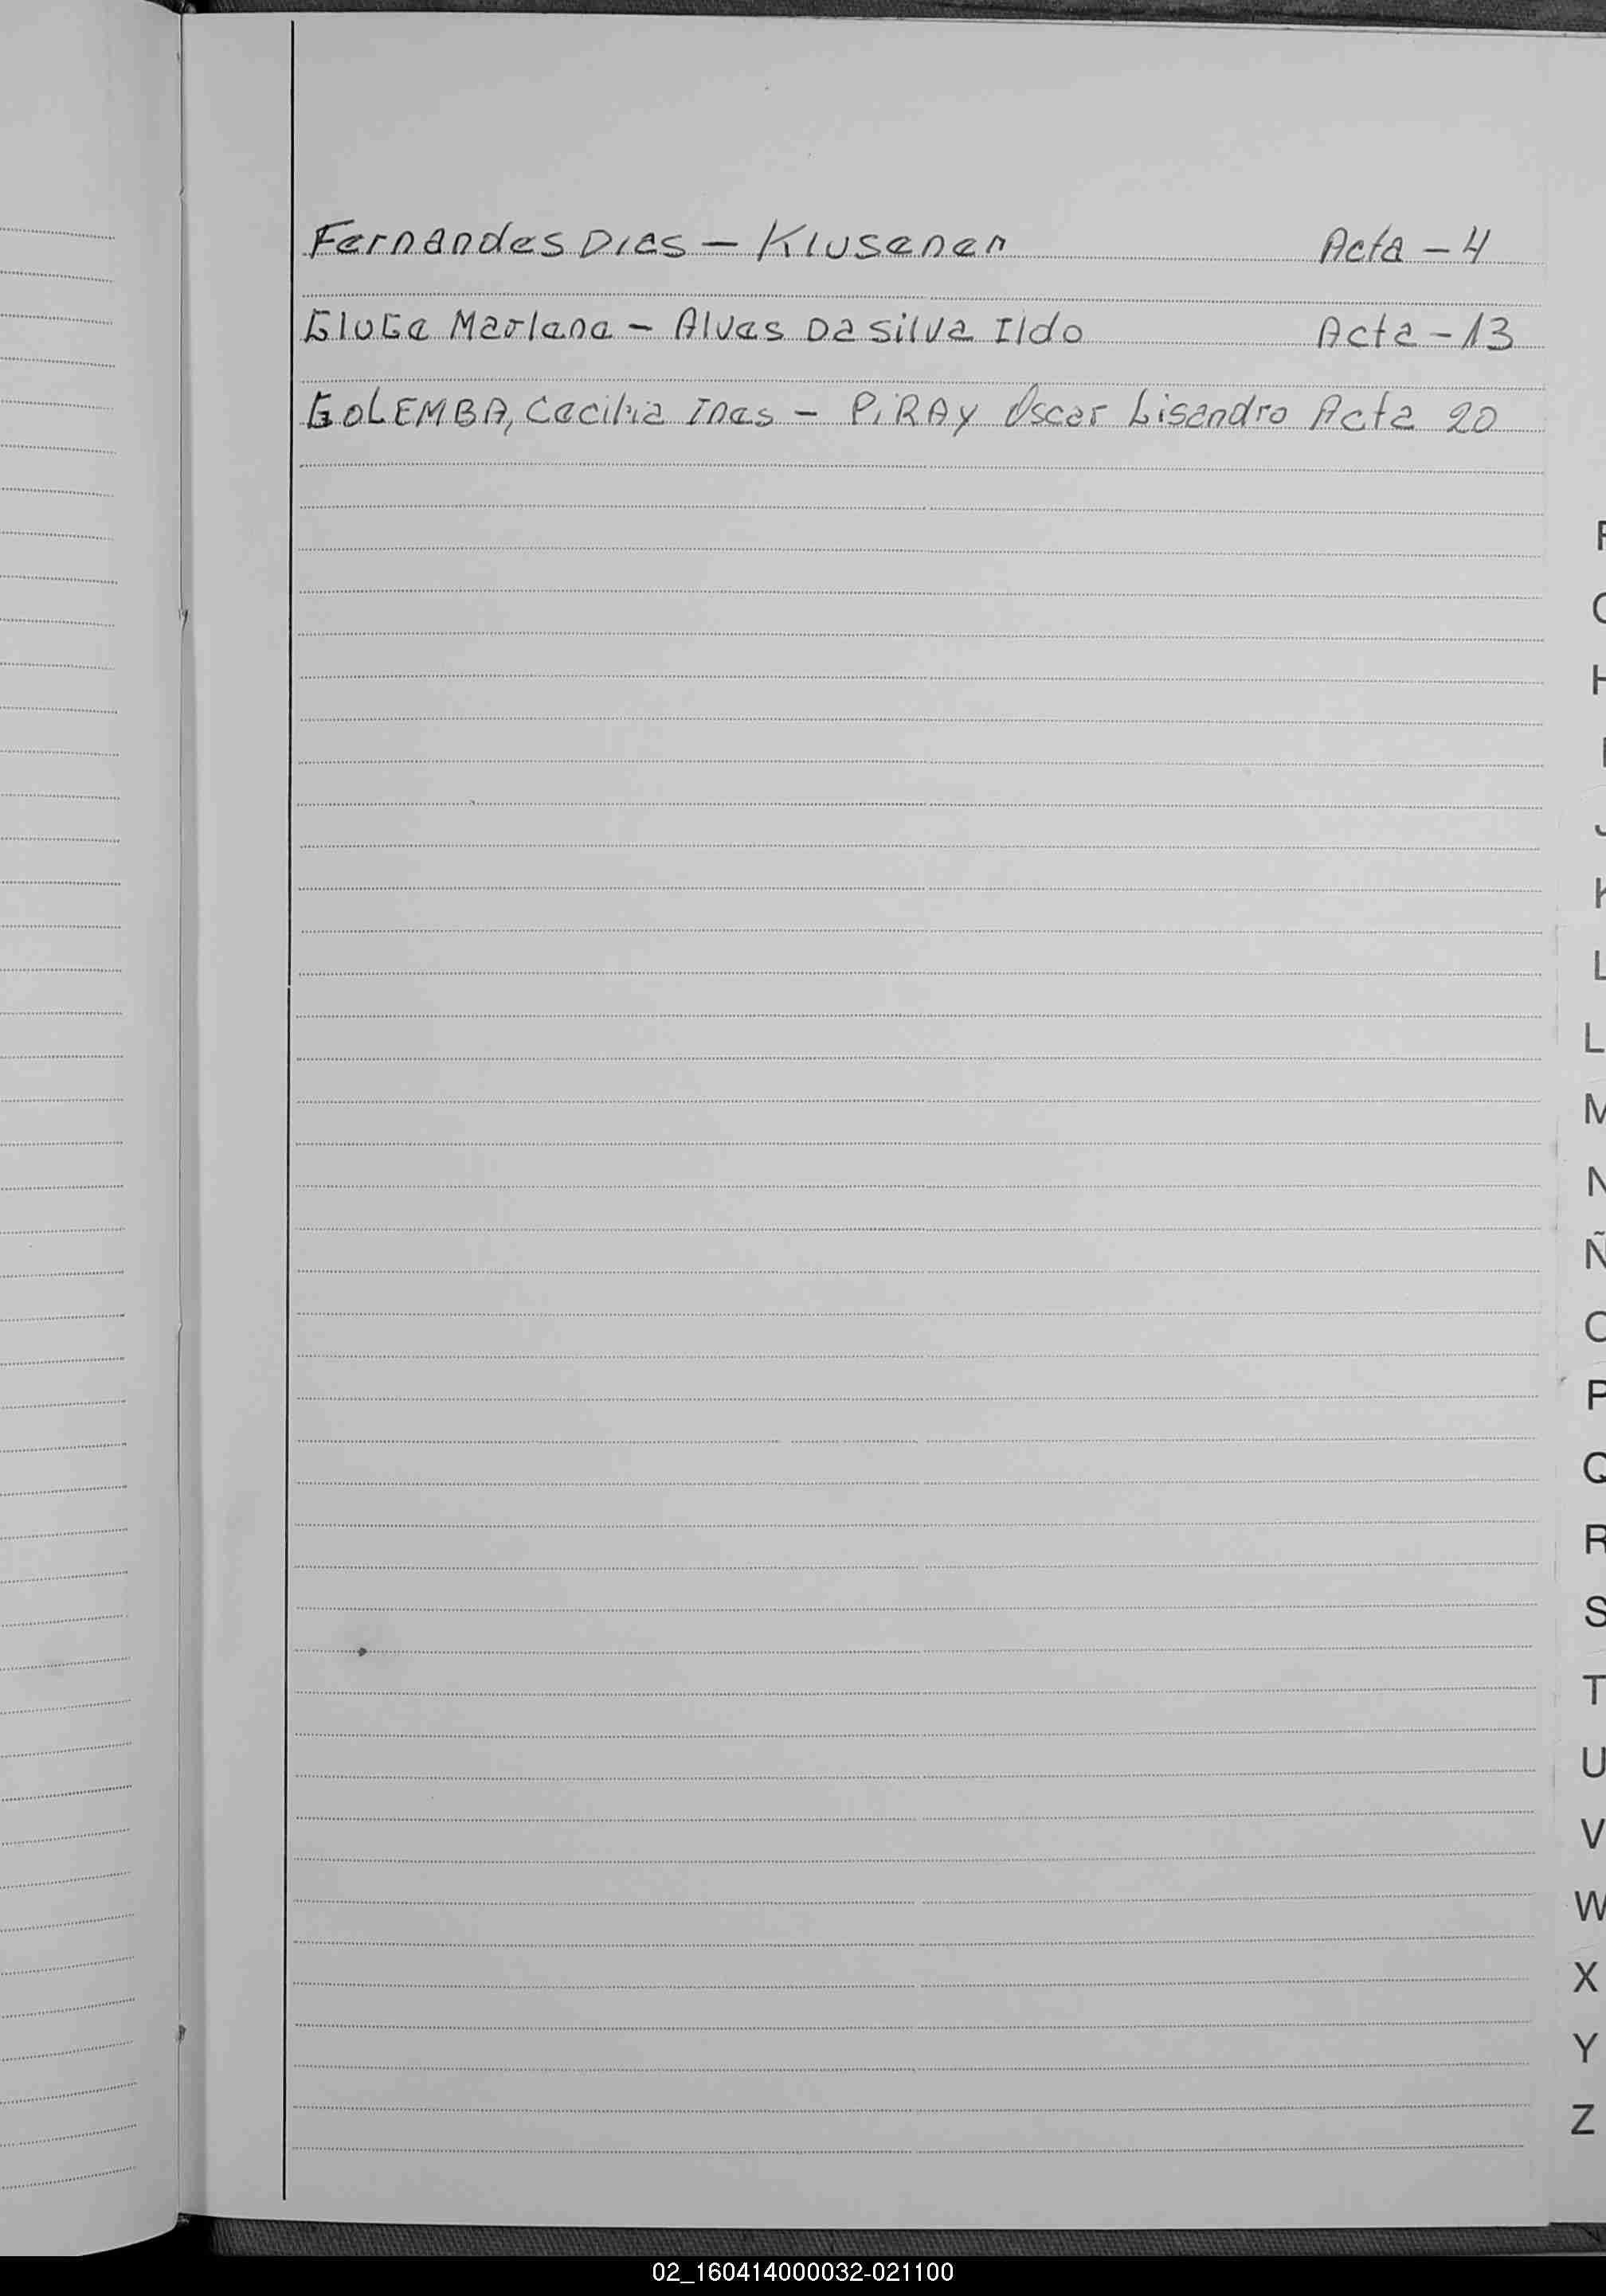 Fernandes Dias - Klusener Acta - 4
Gluge Marlene - Alves Da Silva Ildo Acta - 13
GOLEMBA, Cecilia Ines - PiRAY Oscar Lisandro Acta 20
H
J
K
L
L
M
N
Ñ
O
P
Q
R
S
T
U
V
W
X
Y
Z
02_160414000032-021100